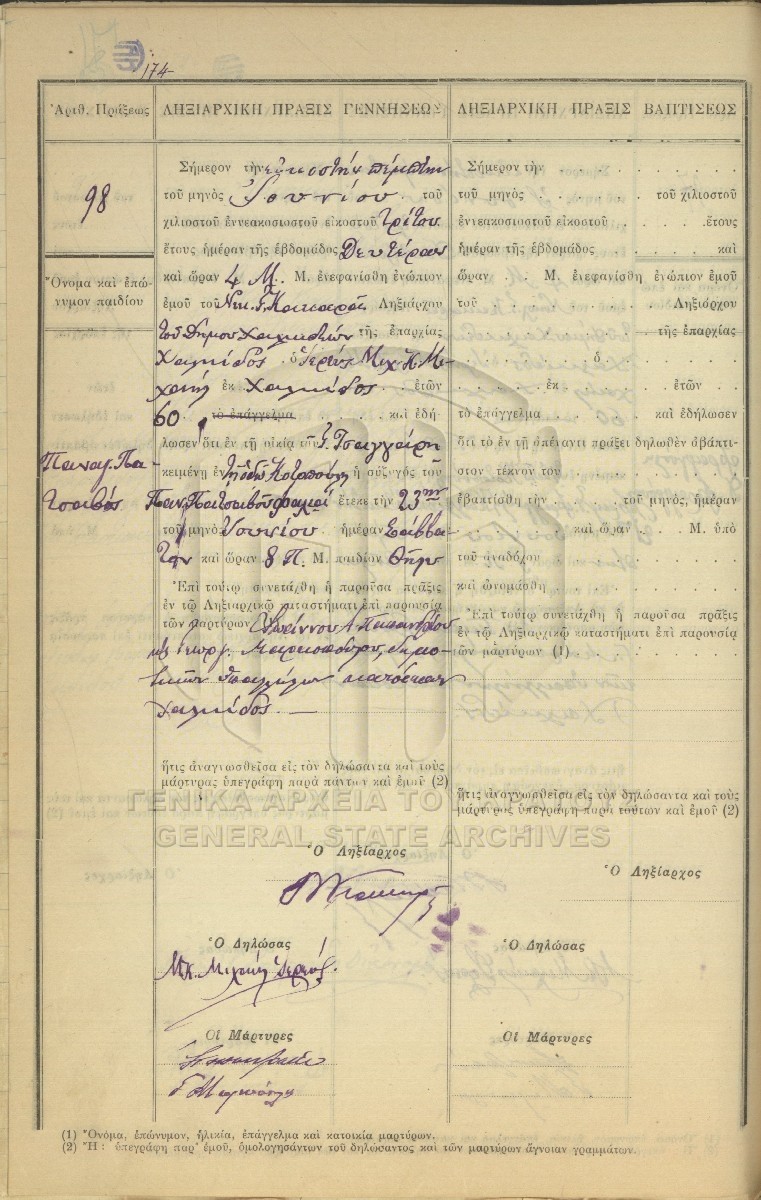 174
Ἀριθ. Πράξεως
ΛΗΞΙΑΡΧΙΚΗ ΠΡΑΞΙΣ ΓΕΝΝΗΣΕΩΣ
ΛΗΞΙΑΡΧΙΚΗ ΠΡΑΞΙΣ ΒΑΠΤΙΣΕΩΣ
98
Ὄνομα καὶ ἐπώ-
νυμον παιδίου
Παναγ. Πα-
τσαβός
Σήμερον τὴν εἰκοστὴν πέμπτην
τοῦ μηνὸς Ἰουνίου τοῦ
χιλιοστοῦ ἐννεακοσιοστοῦ εἰκοστοῦ τρίτου
ἔτους ἡμέραν τῆς ἑβδομάδος Δευτέραν
καὶ ὥραν 4 Μ. Μ. ἐνεφανίσθη ἐνώπιον
ἐμοῦ τοῦ Νικ. Γ. Ληξιάρχου
τοῦ Δήμου Χαλκιδέων τῆς ἐπαρχίας
Χαλκίδος ὁ Ἱερεὺς Μιχ. Κ. Μι-
χαὴλ ἐκ Χαλκίδος ἐτῶν
60 τὸ ἐπάγγελμα καὶ ἐδή-
λωσεν ὅτι ἐν τῇ οἰκίᾳ τοῦ Γ. Τσαγγάρη
κειμένῃ ἐν τῇ ὁδῷ ἡ σύζυγος τοῦ
Παν. Πατσαβοῦ ἔτεκε τὴν 23ην
τοῦ μηνὸς Ἰουνίου ἡμέραν Σάββα-
τον καὶ ὥραν 8 Π. Μ. παιδίον θῆλυ
Ἐπὶ τούτῳ συνετάχθη ἡ παροῦσα πρᾶξις
ἐν τῷ Ληξιαρχικῷ καταστήματι ἐπὶ παρουσίᾳ
τῶν μαρτύρων Ἰωάννου Α.
καὶ Γεωργ. δημο-
τικῶν ὑπαλλήλων κατοίκων
Χαλκίδος. —
ἥτις ἀναγνωσθεῖσα εἰς τὸν δηλώσαντα καὶ τοὺς
μάρτυρας ὑπεγράφη παρὰ πάντων καὶ ἐμοῦ (2)
Ὁ Ληξίαρχος
Ὁ Δηλώσας
Μ. Κ. Μιχαὴλ Ἱερεύς.
Οἱ Μάρτυρες
Σήμερον τὴν
τοῦ μηνὸς τοῦ χιλιοστοῦ
ἐννεακοσιοστοῦ εἰκοστοῦ ἔτους
ἡμέραν τῆς ἑβδομάδος καὶ
ὥραν Μ. ἐνεφανίσθη ἐνώπιον ἐμοῦ
τοῦ Ληξιάρχου
τῆς ἐπαρχίας
ὁ
ἐκ ἐτῶν
τὸ ἐπάγγελμα καὶ ἐδήλωσεν
ὅτι τὸ ἐν τῇ ἀπέναντι πράξει δηλωθὲν ἀβάπτι-
στον τέκνον του
ἐβαπτίσθη τὴν τοῦ μηνός, ἡμέραν
καὶ ὥραν Μ. ὑπὸ
τοῦ ἀναδόχου
καὶ ὠνομάσθη
Ἐπὶ τούτῳ συνετάχθη ἡ παροῦσα πρᾶξις
ἐν τῷ Ληξιαρχικῷ καταστήματι ἐπὶ παρουσίᾳ
τῶν μαρτύρων (1)
ἥτις ἀναγνωσθεῖσα εἰς τὸν δηλώσαντα καὶ τοὺς
μάρτυρας ὑπεγράφη παρὰ τούτων καὶ ἐμοῦ (2)
Ὁ Ληξίαρχος
Ὁ Δηλώσας
Οἱ Μάρτυρες
ΓΕΝΙΚΑ ΑΡΧΕΙΑ ΤΟΥ ΚΡΑΤΟΥΣ
GENERAL STATE ARCHIVES
(1) Ὄνομα, ἐπώνυμον, ἡλικία, ἐπάγγελμα καὶ κατοικία μαρτύρων.
(2) Ἤ: ὑπεγράφη παρ' ἐμοῦ, ὁμολογησάντων τοῦ δηλώσαντος καὶ τῶν μαρτύρων ἄγνοιαν γραμμάτων.